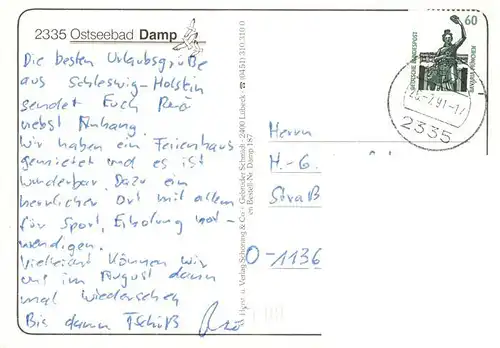 2335 Ostseebad Damp
Die besten Urlaubsgrüße
aus Schleswig-Holstein
sendet Euch René
nebst Anhang.
Wir haben ein Ferienhaus
gemietet und es ist
wunderbar. Dazu ein
herrlicher Ort mit allem
für Sport, Erholung not-
wendigen.
Vielleicht können wir
uns im August dann
mal wiedersehen
Bis dann Tschüß René
Herst. u. Verlag Schöning & Co. · Gebrüder Schmidt · 2400 Lübeck ☎ (0451) 31 03 10 0
Bestell-Nr. Damp 187
60
DEUTSCHE BUNDESPOST
BAVARIA MÜNCHEN
2335
Herrn
H.-G.
Straß
O-1136